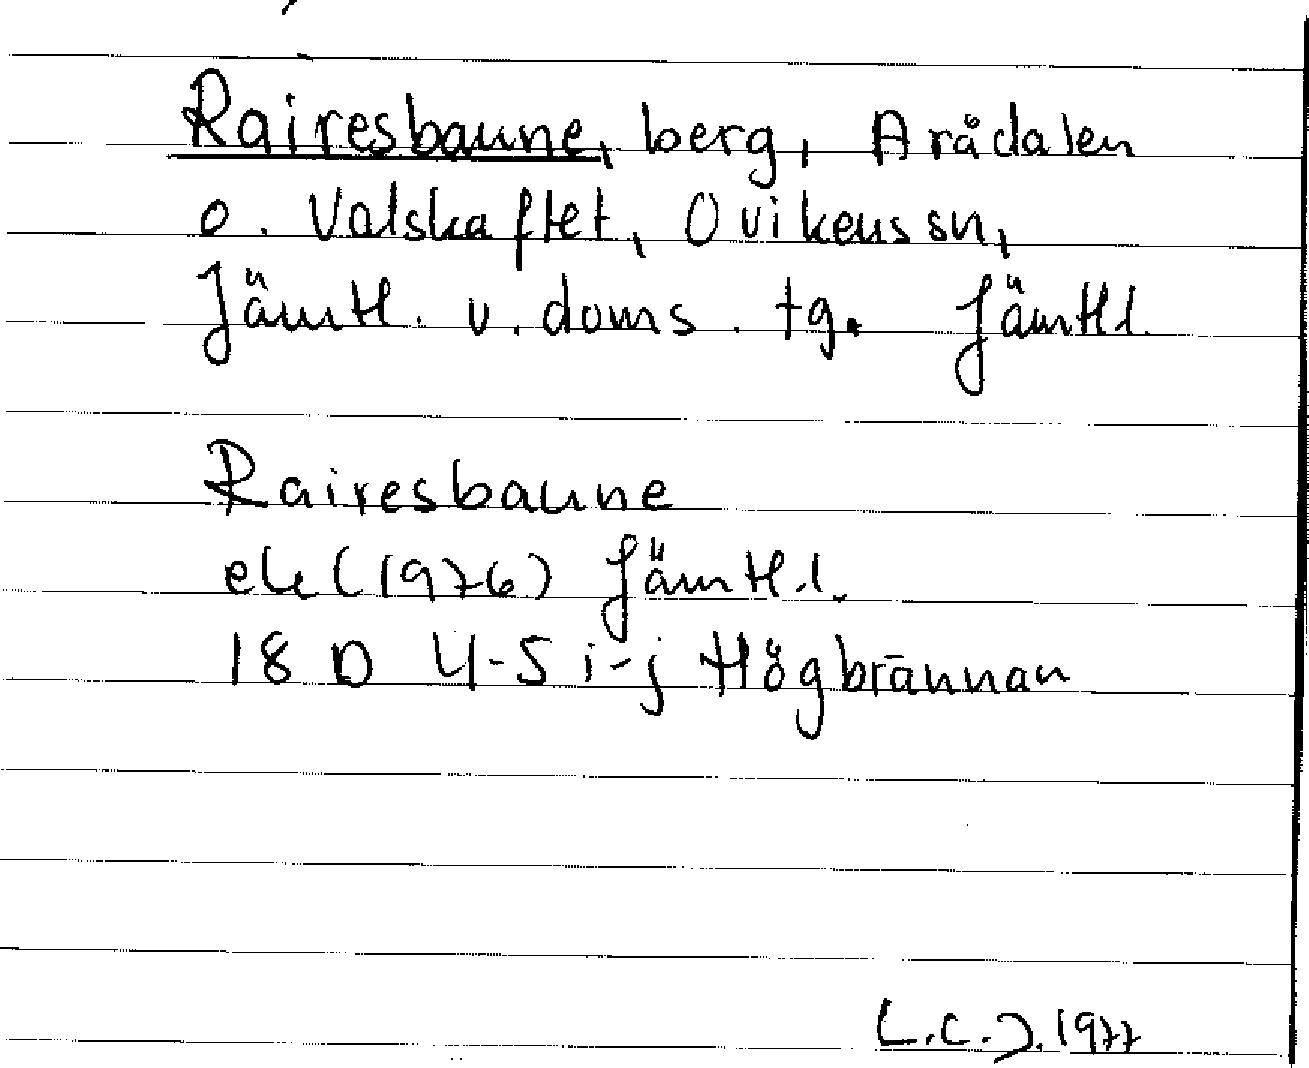 Rairesbaune, berg, Arådalen
o. Valskaftet, Ovikens sn,
Jämtl. v. doms. tg. Jämtl l.
Rairesbaune
ek (1976) Jämtl. l.
18 D 4-5 i-j Högbrännan
L.C.J. 1977